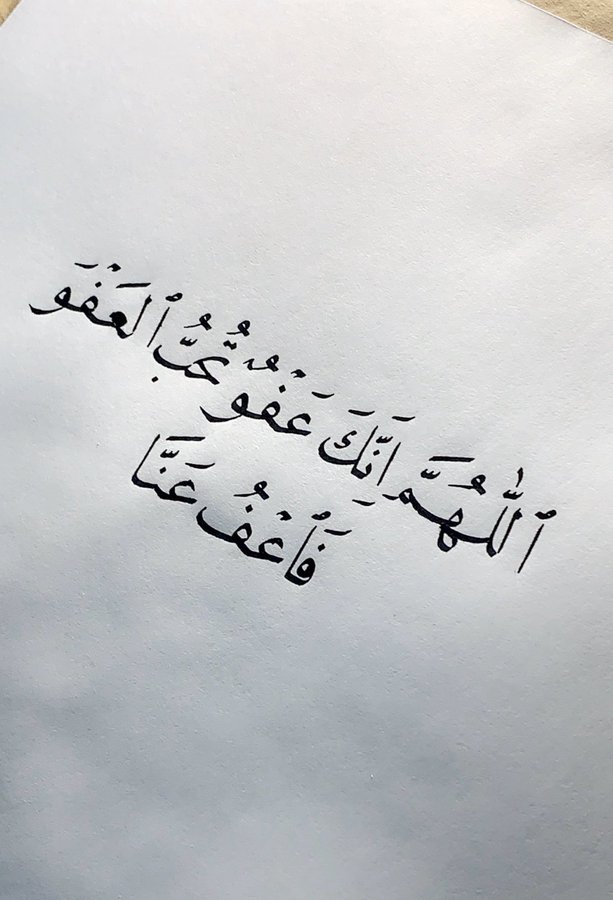 ٱللّٰهُمَّ إِنَّكَ عَفُوٌ تُحِبُّ ٱلعَفْوَ
فَٱعْفُ عَنَّا